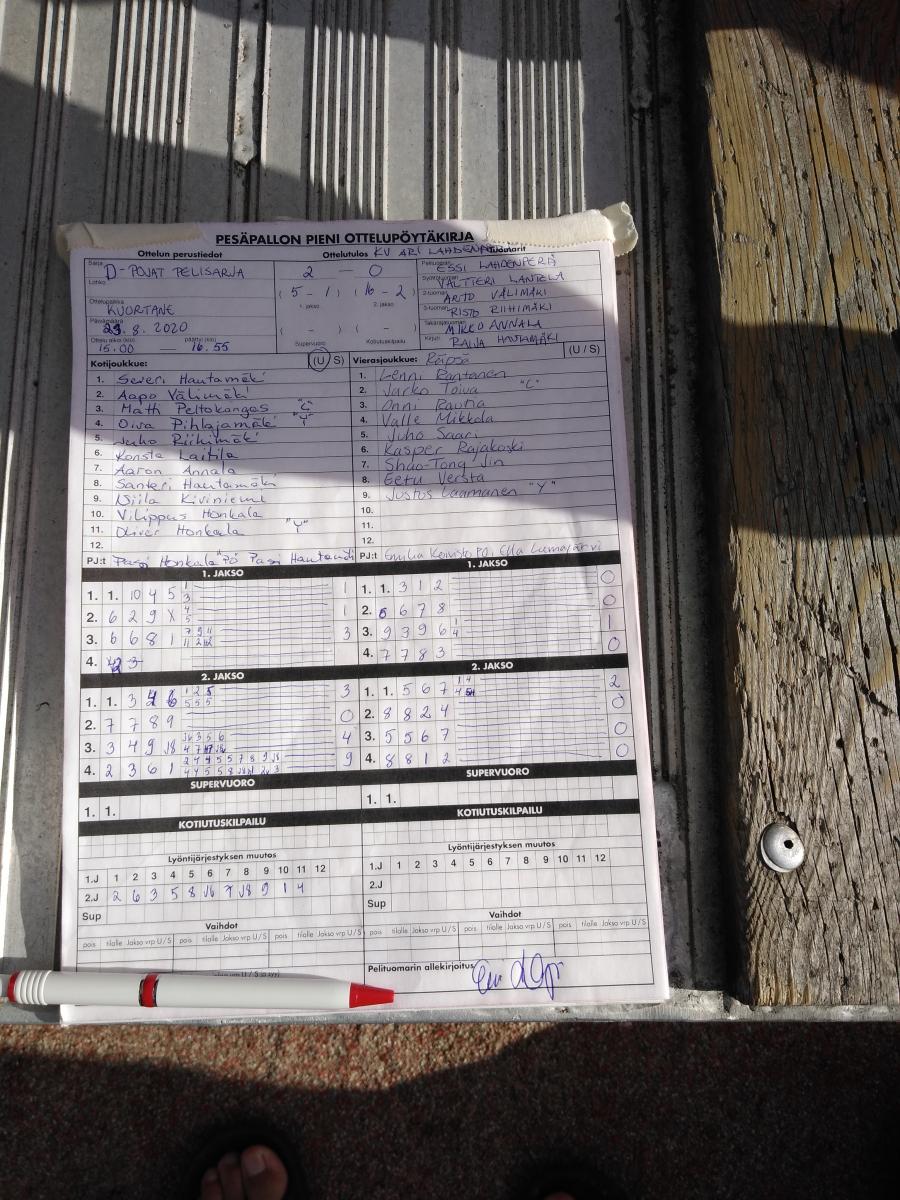 PESÄPALLON PIENI OTTELUPÖYTÄKIRJA
Ottelun perustiedot
Ottelutulos KV ARI LAHDENPERÄ Tuomarit
Sarja D-POJAT PELISARJA
2 — 0
Pelituomari ESSI LAHDENPERÄ
Lohko
( 5 - 1 ) ( 16 - 2 )
Syöttötuomari VALTTERI LANTELA
1. jakso 2. jakso
2-tuomari ARTO VÄLIMÄKI
Ottelupaikka KUORTANE
3-tuomari RISTO RIIHIMÄKI
Päivämäärä 23.8.2020
( - ) ( - )
Takarajatuomari MIRKO ANNALA
Ottelu alkoi (klo) 15.00 päättyi (klo) 16.55
Supervuoro Kotiutuskilpailu
Kirjuri RAIJA HAUTAMÄKI
Kotijoukkue: (U / S)
1. Severi Hautamäki
2. Aapo Välimäki
3. Matti Peltokangas "C"
4. Oiva Pihlajamäki "Y"
5. Juho Riihimäki
6. Konsta Laitila
7. Aaron Annala
8. Santeri Hautamäki
9. Niila Kiviniemi
10. Vilippus Honkala
11. Oliver Honkala "Y"
12.
PJ:t Pasi Honkala "PJ" Pasi Hautamäki
Vierasjoukkue: Räipsä (U / S)
1. Lenni Rantanen
2. Jarko Toiva "C"
3. Onni Rauha
4. Valle Mikkola
5. Juho Saari
6. Kasper Rajakoski
7. Shao-Tong Jin
8. Eetu Versta
9. Justus Laamanen "Y"
10.
11.
12.
PJ:t Emilia Koivisto PJ, Ella Lumojärvi
1. JAKSO
1. 1. 10 4 5 1
2. 6 2 9 X 1
3. 6 6 8 1 3
4.
1. JAKSO
1. 1. 3 1 2 0
2. 5 6 7 8 0
3. 9 3 9 6 1
4. 7 7 8 3 0
2. JAKSO
1. 1. 3 4 6 3
2. 7 7 8 9 0
3. 3 4 9 4
4. 2 3 6 1 9
2. JAKSO
1. 1. 5 6 7 2
2. 8 8 2 4 0
3. 5 5 6 7 0
4. 8 8 1 2 0
SUPERVUORO
1. 1.
SUPERVUORO
1. 1.
KOTIUTUSKILPAILU
KOTIUTUSKILPAILU
Lyöntijärjestyksen muutos
1.J 1 2 3 4 5 6 7 8 9 10 11 12
2.J 2 6 3 5 8 J6 7 J8 9 1 4
Sup
Lyöntijärjestyksen muutos
1.J 1 2 3 4 5 6 7 8 9 10 11 12
2.J
Sup
Vaihdot
pois tilalle Jakso vrp U / S pois tilalle Jakso vrp U / S pois tilalle Jakso vrp U / S
Vaihdot
pois tilalle Jakso vrp U / S pois tilalle Jakso vrp U / S pois tilalle Jakso vrp U / S
Pelituomarin allekirjoitus